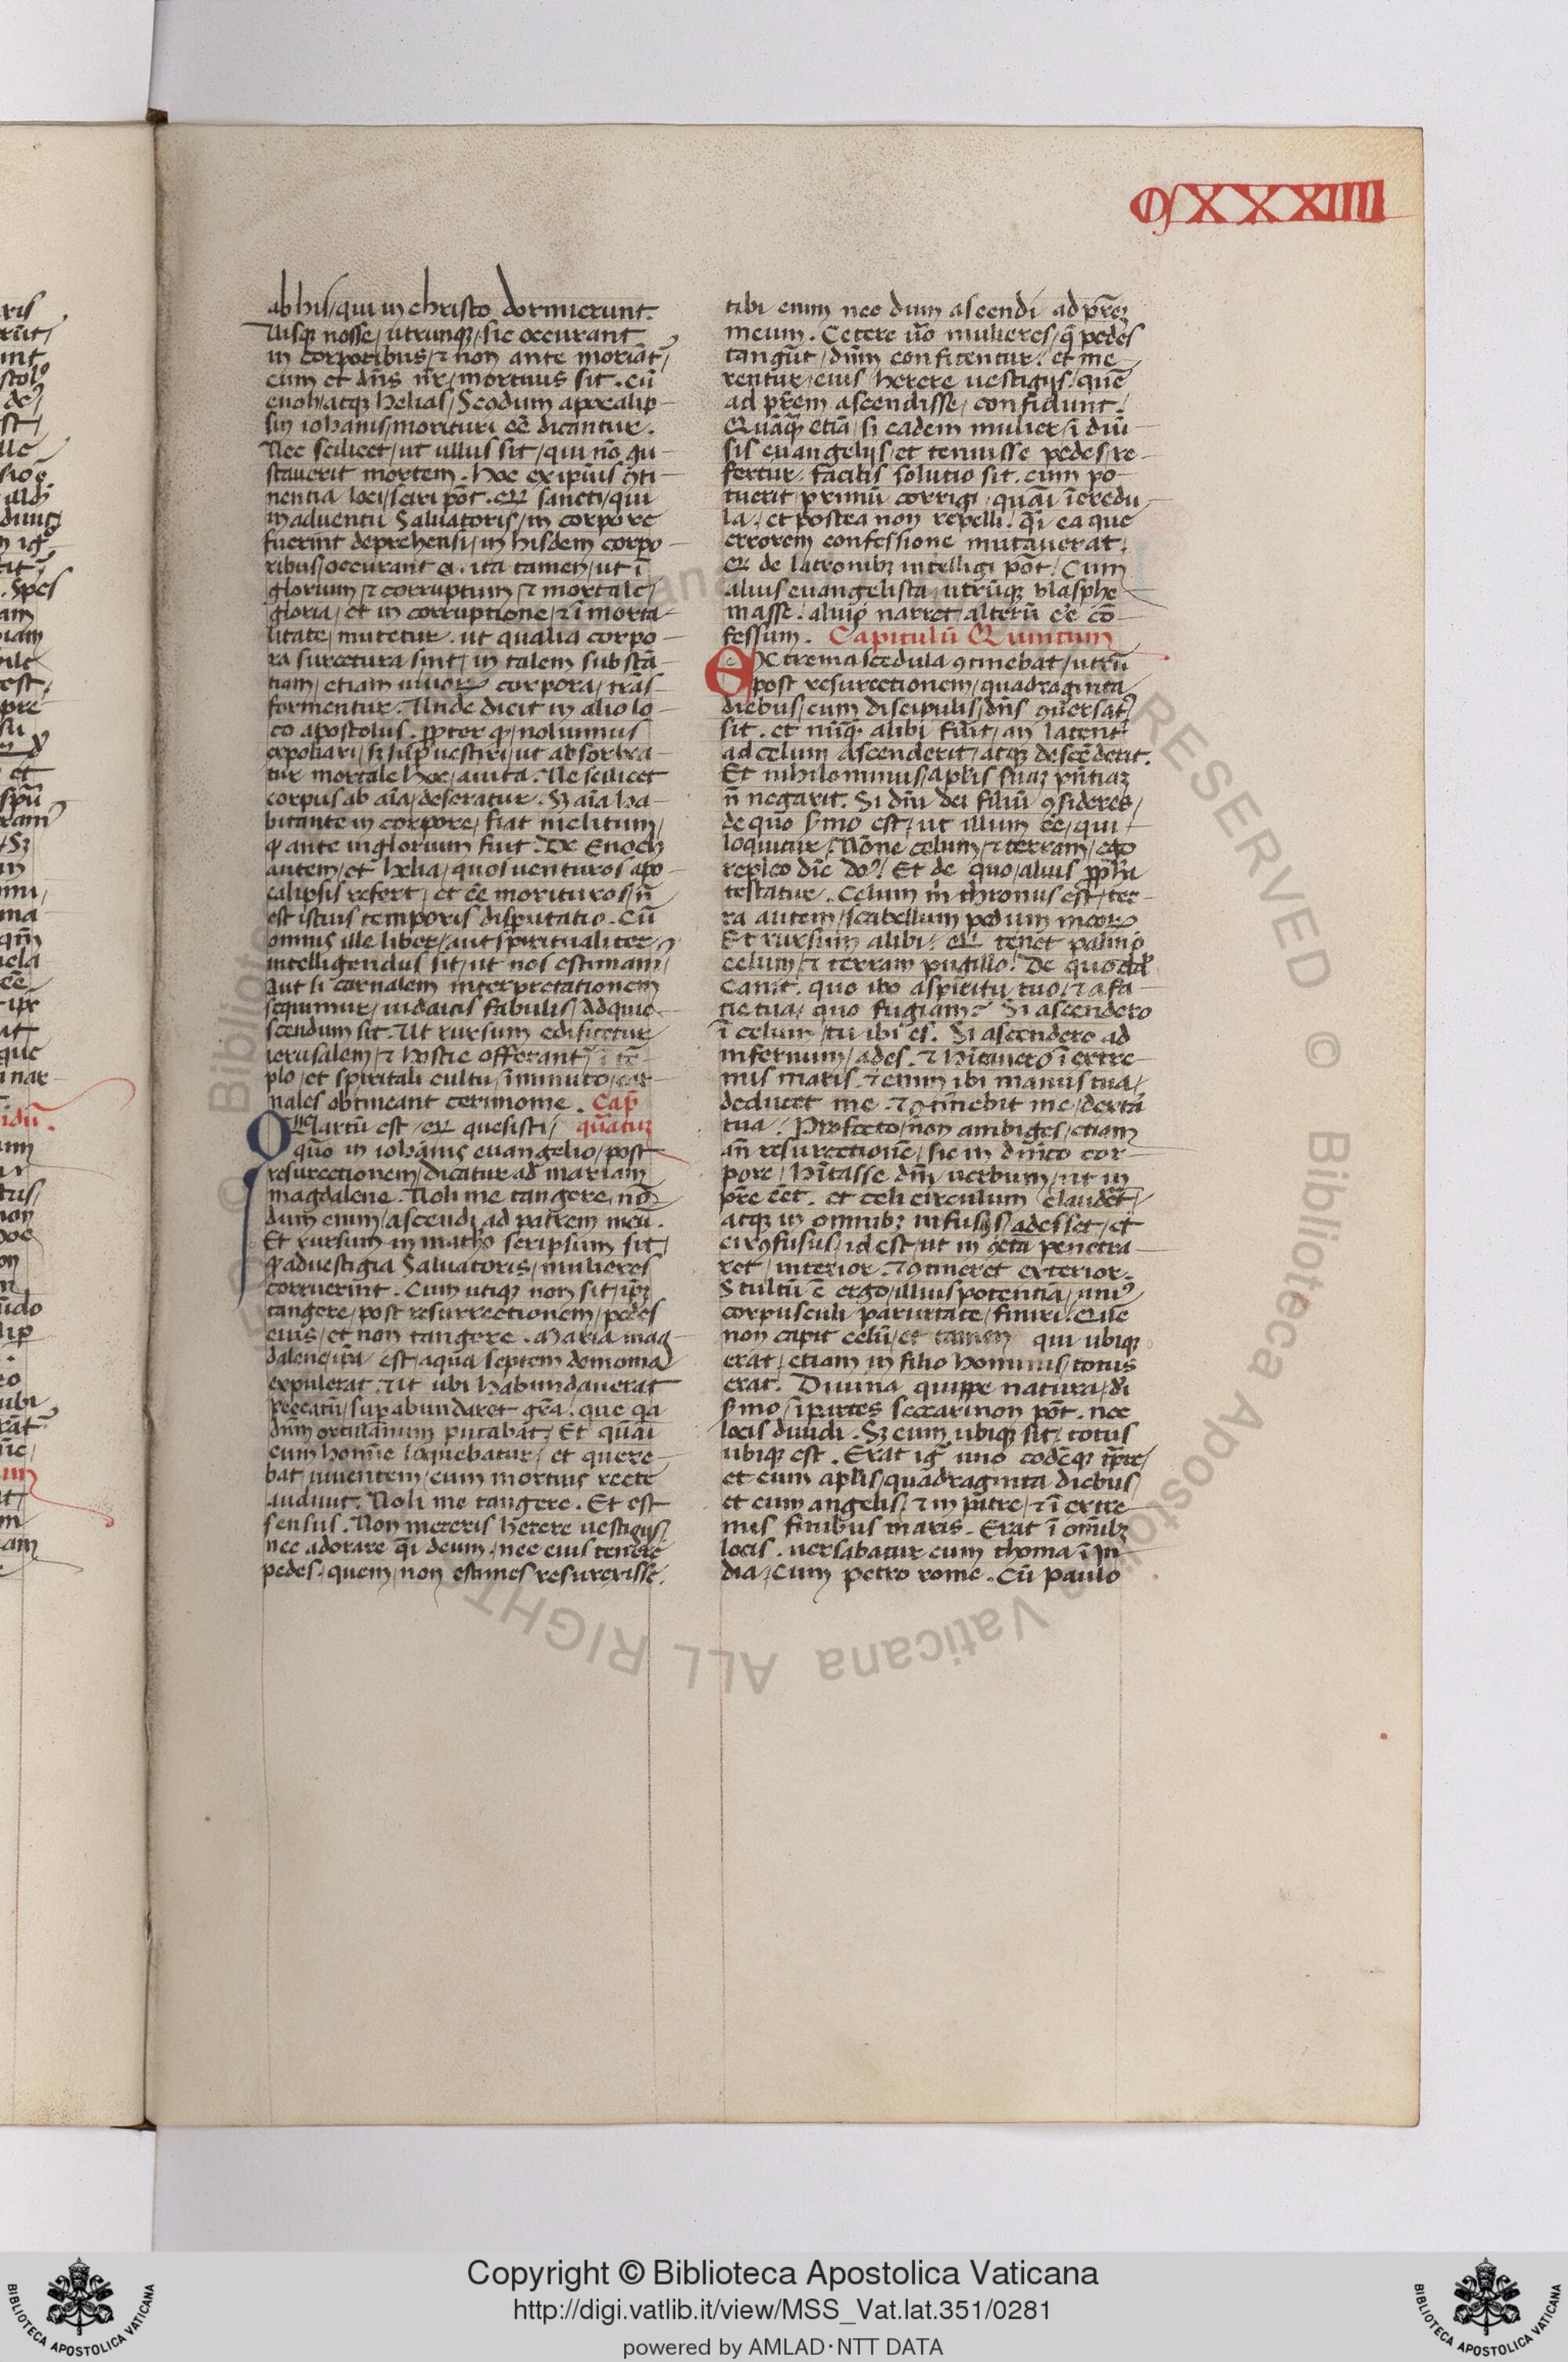 CXXXIIII
ab his/qui in christo dormierunt.
Uisq nosse/utrunq/sic occurant
in corporibus/⁊ non ante moriãt᷒/
cum et dñs ñr/mortuus sit. cũ
enoh/atq helias/Scodum apocalip-
sin iohanis/morituri eẽ dicantur.
Nec scilicet/ut ullus sit/qui nõ gu-
stauerit mortem. hoc ex ipius ↄti-
nentia loci/sciri põt. qꝛ sancti/qui
in aduentu Saluatoris/in corpore
fuerint deprehensi/in hisdem corpo-
ribus/occurant ei. ita tamen/ut ĩ
glorium/⁊ corruptum/⁊ mortale/
gloria/et in corruptione/⁊ ĩ morta-
litate/mutetur. ut qualia corpo-
ra surectura sint/in talem substã-
tiam/etiam uiuoꝝ corpora/trãs-
formentur. Unde dicit in alio lo-
co apostolus. ꝓpter qꝫ/nolumus
expoliari/sꝫ suꝑuestiri/ut absorbea-
tur mortale hoc/auita. Ne scilicet
corpus ab aĩa/deseratur. Sꝫ aĩa ha-
bitante in corpore/fiat inclitum/
qꝫ ante inglorium fuit. De Enoch
autem/et helia/quos uenturos apo-
calipsis refert/et eẽ morituros/ñ
est istius temporis disputatio. Cũ
omnis ille liber/aut spiritualiter
intelligendus sit/ut nos estimam᷒/
Aut si carnalem interpretationem
sequimur/iudaicis fabulis/Adquie-
scendum sit. Ut rursum edificetur
ierusalem/⁊ hostie offerant᷒ ĩ tẽ-
plo/et spiritali cultu/ĩminuto/car-
nales obtineant cerimonie. Cap̃
Quartũ est/qꝛ quesisti/ quatuꝫ
quõ in iohãnis euangelio/post
resurectionem/dicatur ad mariam
magdalene. Noli me tangere. nõ
dum enim/ascendi ad patrem meũ.
Et rursum in matheo scripsum sit/
qꝫ aduestigia Saluatoris/mulieres
corruerint. Cum utiqꝫ non sit/ipꝫ
tangere/post resurrectionem/pedes
eius/et non tangere. Maria mag-
dalene/ip̃a est/aqua septem demonia
expulerat. ut ubi habundauerat
peccatũ/suꝑabundaret grã. que qa
dñm ortulanum putabat/Et quãi
cum homĩe loquebatur/et quere-
bat/uiuentem/cum mortuis recte
audiuit. Noli me tangere. Et est
sensus. Non mereris herere uestigijs/
nec adorare qi deum/nec eius tenere
pedes. quem/non estimes resurexisse.
tibi enim nec dum ascendi ad prẽꝫ
meum. Cetere ũo mulieres/q̃ pedes
tangũt/dñm confitentur. et me-
rentur/eius herere uestigijs/quẽ
ad prẽm ascendisse/confidunt.
Quãqꝫ etiã/si eadem mulier/ĩ diũ-
sis euangelijs/et tenuisse pedes/re-
fertur. facilis solutio sit. cum po-
tuerit primũ corrigi/quãi ĩcredu-
la/et postea non repelli/qi ea que
errorem confessione mutauerat.
qꝛ de latronibꝫ intelligi põt/Cum
alius euangelista/utrũqꝫ blasphe-
masse/alius narret/alterũ eẽ cõ-
fessum. Capitulũ Quintum
Extrema scedula ↄtinebat/utrũ
post resurectionem/quadraginta
diebus/cum discipulis/dñs ↄũersat᷒
sit. et nũqꝫ alibi fũit/an latent᷒
ad celum ascenderit/atqꝫ descẽderit.
Et nihilominus/aplis suaꝫ pñtiaꝫ
ñ negarit. Si dñu dei filiũ ↄsideres/
de quo sermo est/ut illum eẽ/qui
loquitur/Nõne celum/⁊ terram/ego
repleo dic̃ do᷒/Et de quo/alius ꝓpha
testatur. Celum m̃ thronus est/ter-
ra autem/scabellum pedum meoꝝ
Et rursum alibi. qꝛ tenet palmo
celum/⁊ terram pugillo. De quo dd
Canit. quo ibo aspiritu tuo/⁊ a fa-
cie tua/quo fugiam? Si ascendero
ĩ celum/tu ibi es. Si ascendero ad
infernum/ades. ⁊ hitauero ĩ extre-
mis maris. ⁊ enim ibi manus tua/
deducet me. ⁊ ↄtinebit me/dextã
tua/. Profecto/non ambiges/etiam
añ resurectionẽ/sic in dñico cor-
pore/hitasse dm̃ uerbum/ut in
pr̃e eẽt. et celi circulum clauderet/
atqꝫ in omnibꝫ infusus adesset/et
circũfusus/id est/ut in ↄcta penetra-
ret/interior. ⁊ ↄtineret exterior.
Stultũ ẽ ergo/illius potentiã/uni᷒
corpusculi paruitate/finiri. Quẽ
non capit celũ/et tamen qui ubiqꝫ
erat/etiam in filio hominis/totus
erat. Diuina quippe natura/dĩ
sermo/ĩ partes seccari non põt. nec
locis diuidi. Sꝫ cum ubiqꝫ sit/totus
ubiqꝫ est. Erat ig̃ uno eodẽqꝫ tp̃re/
et cum aplis/quadraginta diebus/
et cum angelis/⁊ in patre/⁊ ĩ extre-
mis finibus maris. Erat ĩ omibꝫ
locis. uersabatur cum thoma ĩ In-
dia/Cum petro rome. Cũ paulo
Copyright © Biblioteca Apostolica Vaticana
http://digi.vatlib.it/view/MSS_Vat.lat.351/0281
powered by AMLAD·NTT DATA
BIBLIOTECA APOSTOLICA VATICANA
BIBLIOTECA APOSTOLICA VATICANA